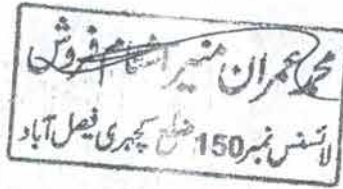 محمد عمران منیر اشٹام فروش
لائسنس نمبر 150 ضلع کچہری فیصل آباد